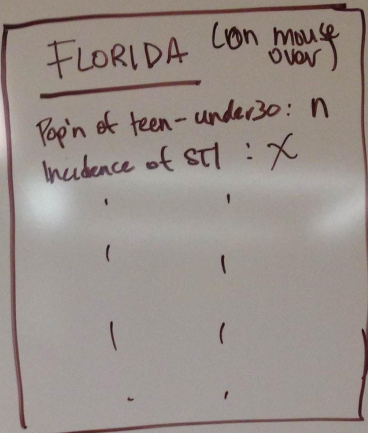 FLORIDA (on mouse over)
Pop'n of teen-under30: n
Incidence of STI : X